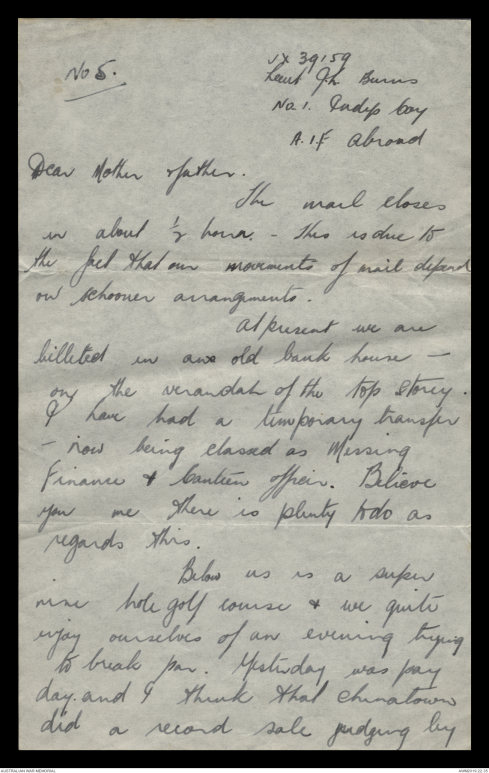 No 5.
VX 39159
Lieut J.h. Burns
No. 1. Indep Coy
A.I.F abroad
Dear Mother & father.
The mail closes
in about ½ hour. - This is due to
the fact that our movements of mail depend
on schooner arrangments.
At present we are
billeted in an old bank house -
on the verandah of the top storey.
I have had a temporary transfer
- now being classed as Messing
Finance & Canteen officer. Believe
you me there is plenty to do as
regards this.
Below us is a super
nine hole golf course & we quite
enjoy ourselves of an evening trying
to break par. Yesterday was pay
day. and I think that chinatown
did a record sale judging by
AUSTRALIAN WAR MEMORIAL